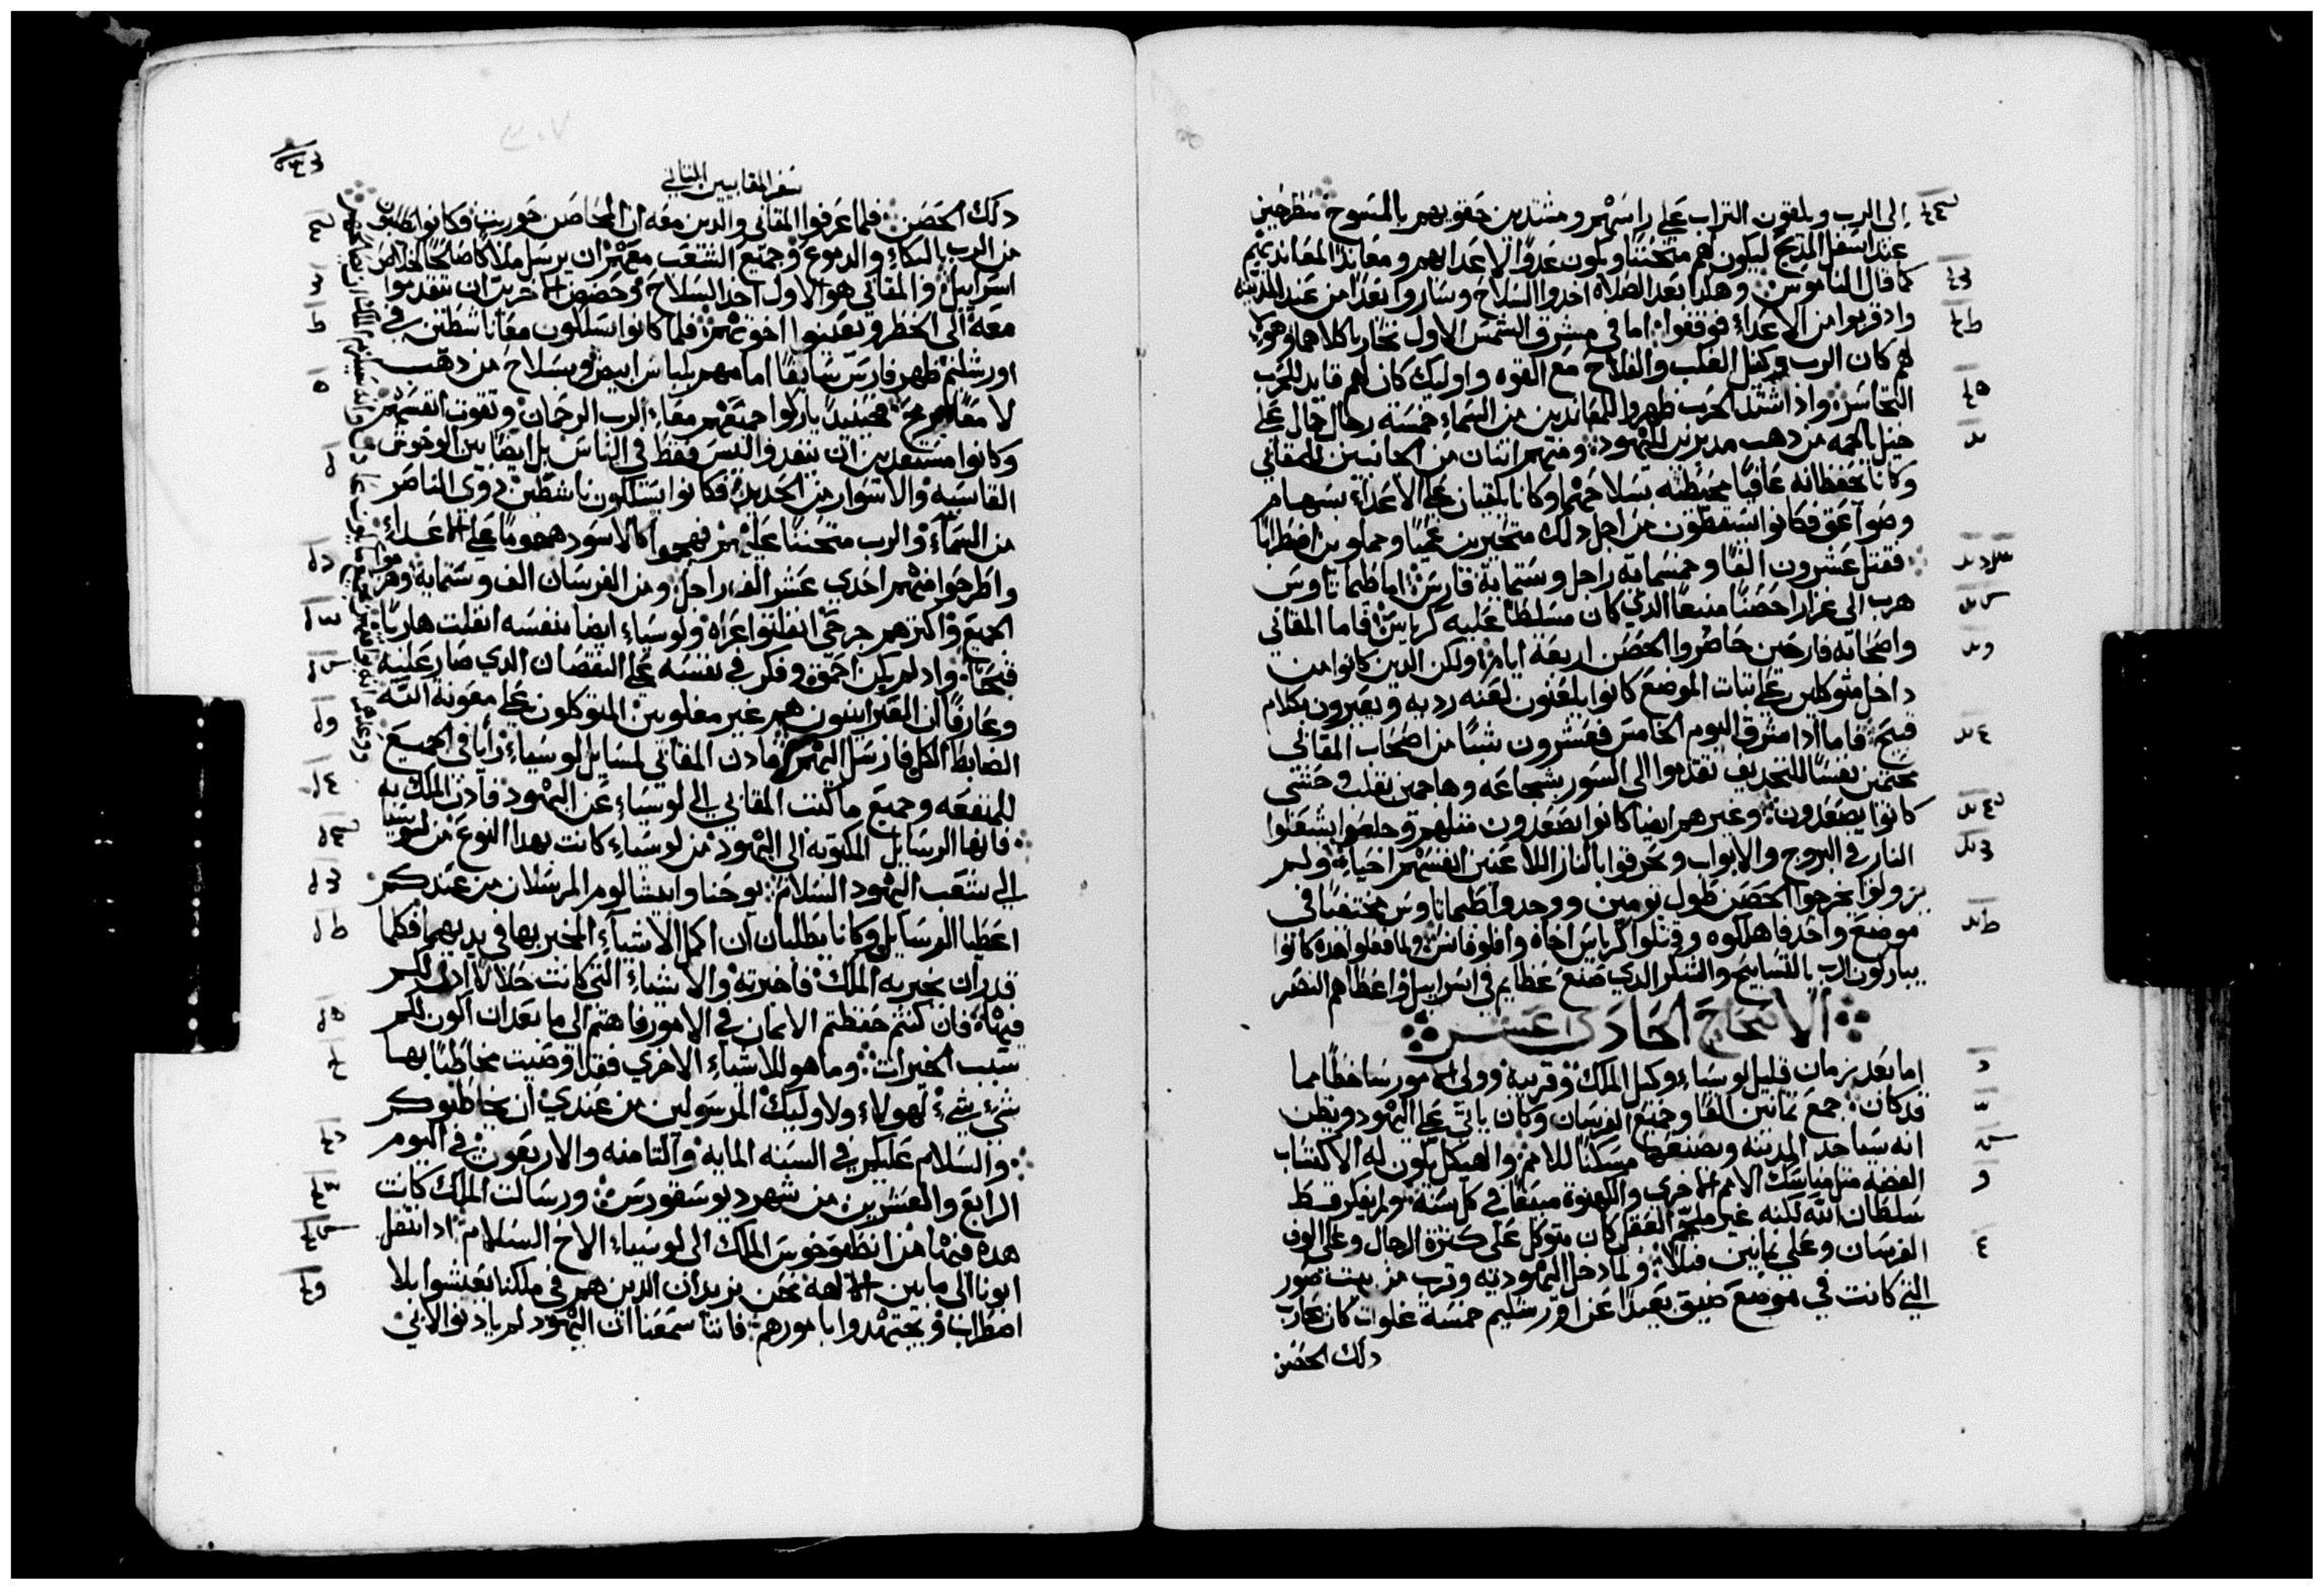 الى الرب ويلقون التراب على راسهم ومشتدين حقويهم بالمسوح منطرحين
عند اسفل المدبح ليكون لهم متحننا ويكون عدوا لاعداهم ومعاندا لمعانديهم
كما قال الناموس وهكدا بعد الصلاه اخدوا السلاح وساروا بعدا من عند المدينه
واد قربوا من الاعداء فوقفوا اما في مشرق الشمس الاول تحاربا كلاهما وهولاء
لهم كان الرب وكفيل الغلب والفلاح مع القوه واوليك كان لهم قايد للحرب
التجاسر واذ اشتد الحرب ظهروا للمعاندين من السماء خمسة رجال جمال على
خيل بالجمه من دهب مدبرين لليهود ومنهم اتنان من الجانبين للمقابي
وكانا يحفظانه عافيا محيطينه بسلاحهما وكانا يلقيان على الاعداء بسهام
وصواعق فكانوا يسقطون من اجل دلك متحيرين عميا ومملوين اضطرابا
فقتل عشرون الفا وخمسماية راجل وستماية فارس اما طيماتاوس
هرب الى غزارا حصنا منيعا الدي كان مسلطا عليه كرياس فاما المقابي
واصحابه فارحين حاصروا الحصن اربعة ايام ولكن الدين كانوا من
داخل متوكلين على تبات الموضع كانوا يلعنون لعنه رديه ويعيرون بكلام
قبيح فاما ادا مشرق اليوم الخامس فعشرون شبا من اصحاب المقابي
محتمين نفسا للتجديف تقدموا الى السور بشجاعه وهاجمين بقلب وحشي
كانوا يصعدون وغيرهم ايضا كانوا يصعدون متلهم وجلعوا يشعلوا
النار في البروج والابواب ويحرقوا بالنار اللاعنين انفسهم احياء ولم
يزولوا يخرجوا الحصن طول يومين ووجدوا طيماتاوس مختفيا في
موضع واحد فاهلكوه وقتلوا كرياس اخاه وافلوفانس ولما فعلوا هده كانوا
يباركون الرب بالتسابيح والشكر الدي صنع عظايم في اسراييل واعطاهم النصر
الاصحاح الحادي عشر
اما بعد زمان قليل لوسياء وكيل الملك وقريبه وولي الامور ساخطا مما
قد كان جمع تمانين الفا وجميع الفرسان وكان ياتي على اليهود ويظن
انه سياخد المدينه ويصنعها مسكنا للامم والهيكل يكون له الاكتساب
الفضه متل مناسك الامم الاخرى والكهنوة مبتعا في كل سنة ولم يفكر قط
سلطان الله لكنه غير ملجم العقل كان متوكل على كترة الرجال وعلى الوف
الفرسان وعلي تمانين فيلا ولما دخل اليهوديه وقرب من بيت صور
التي كانت في موضع ضيق بعيدا عن اورشليم خمسة غلوات كان يحارب
دلك الحصن
سفر المقابيين التاني
دلك الحصن فلما عرفوا المقابي والدين معه ان المحاصن حوربت وكانوا يطلبون
من الرب بالبكاء والدموع وجميع الشعب معهم ان يرسل ملاكا صالحا لخلاص
اسراييل والمقابي هو الاول اخد السلاح وحضض الاخرين ان يتقدموا
معه الى الخطر ويعينوا اخوتهم فلما كانوا يسلكون معا ناشطين في
اورشليم ظهر فارس سابقا امامهم بلباس ابيض وبسلاح من دهب
لامعا رمح حينيد باركوا جميعهم معا الرب الرحمان وتقوت انفسهم
وكانوا مستعدين ان ينفدوا ليس فقط في الناس بل ايضا بين الوحوش
القاسيه والاسوار من الحديد فكانوا يسلكون ناشطين دوي الناصر
من السماء والرب متحننا عليهم فهجموا كالاسود هجوما على الاعداء
واطرحوا منهم احدى عشر الف راجل ومن الفرسان الف وستماية وهربوا
الجميع واكترهم جرحى انفلتوا عراه ولوسياء ايضا بنفسه انفلت هاربا
قبيحا واد لم يكن احمق وفكر في نفسه على النقصان الدي صار عليه
وعارفا ان العبرانيون هم غير مغلوبين المتوكلون على معونة الله
الضابط الكل فارسل اليهم فادن المقابي لمسايل لوسياء رايا في الجميع
للمنفعه وجميع ما كتب المقابي الى لوسياء عن اليهود فادن الملك به
فانها الرسايل المكتوبه الى اليهود من لوسياء كانت بهدا النوع من لوسيا
الى شعب اليهود السلام يوحنا وابيشالوم المرسلان من عندكم
اعطيا الرسايل وكانا يطلبان ان اكمل الاشياء المخبر بها في يديهما فكلما
قدر ان يخبر به الملك فاخبرته والاشياء التي كانت حلالا ادن لكم
فيها فان كنتم حفظتم الايمان في الامور فاهتم الى ما بعد ان اكون لكم
سبب الخيرات وما هو للاشياء الاخري فقد اوصيت مخاطبا بها
شيء شيء لهولاء ولاوليك المرسولين من عندي ان يخاطبوكم
والسلام عليكم في السنه المايه والتامنه والاربعون في اليوم
الرابع والعشرين من شهر ديوسقورس ورسالت الملك كانت
هده فيها من انطيوخوس الملك الى لوسياء الاخ السلام اد انتقل
ابونا الى ما بين الالهه نحن نريد ان الدين هم في ملكنا يعيشوا بلا
اضطراب ويجتهدوا بامورهم فاننا سمعنا ان اليهود لم يادنوا لابي